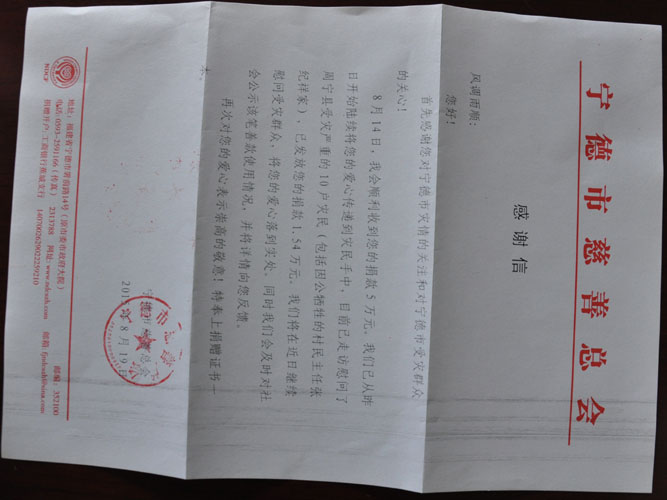 宁德市慈善总会
感谢信
风调雨顺：
您好！
首先感谢您对宁德市灾情的关注和对宁德市受灾群众
的关心！
8月14日，我会顺利收到您的捐款5万元。我们已从昨
日开始陆续将您的爱心传递到灾民手中，目前已走访慰问了
周宁县受灾严重的10户灾民（包括因公牺牲的村民主任张
纪祥家），已发放您的捐款1.54万元。我们将在近日继续
慰问受灾群众，将您的爱心落到实处。同时我们会及时对社
会公示该笔善款使用情况，并将详情向您反馈。
再次对您的爱心表示崇高的敬意！特奉上捐赠证书一
宁德市慈善总会
8月19日
NDCF
地址：福建省宁德市署前路14号（原市委市政府大院）
邮编：352100
电话：0593-2291166（传真）
2313788
捐赠开户：工商银行蕉城支行